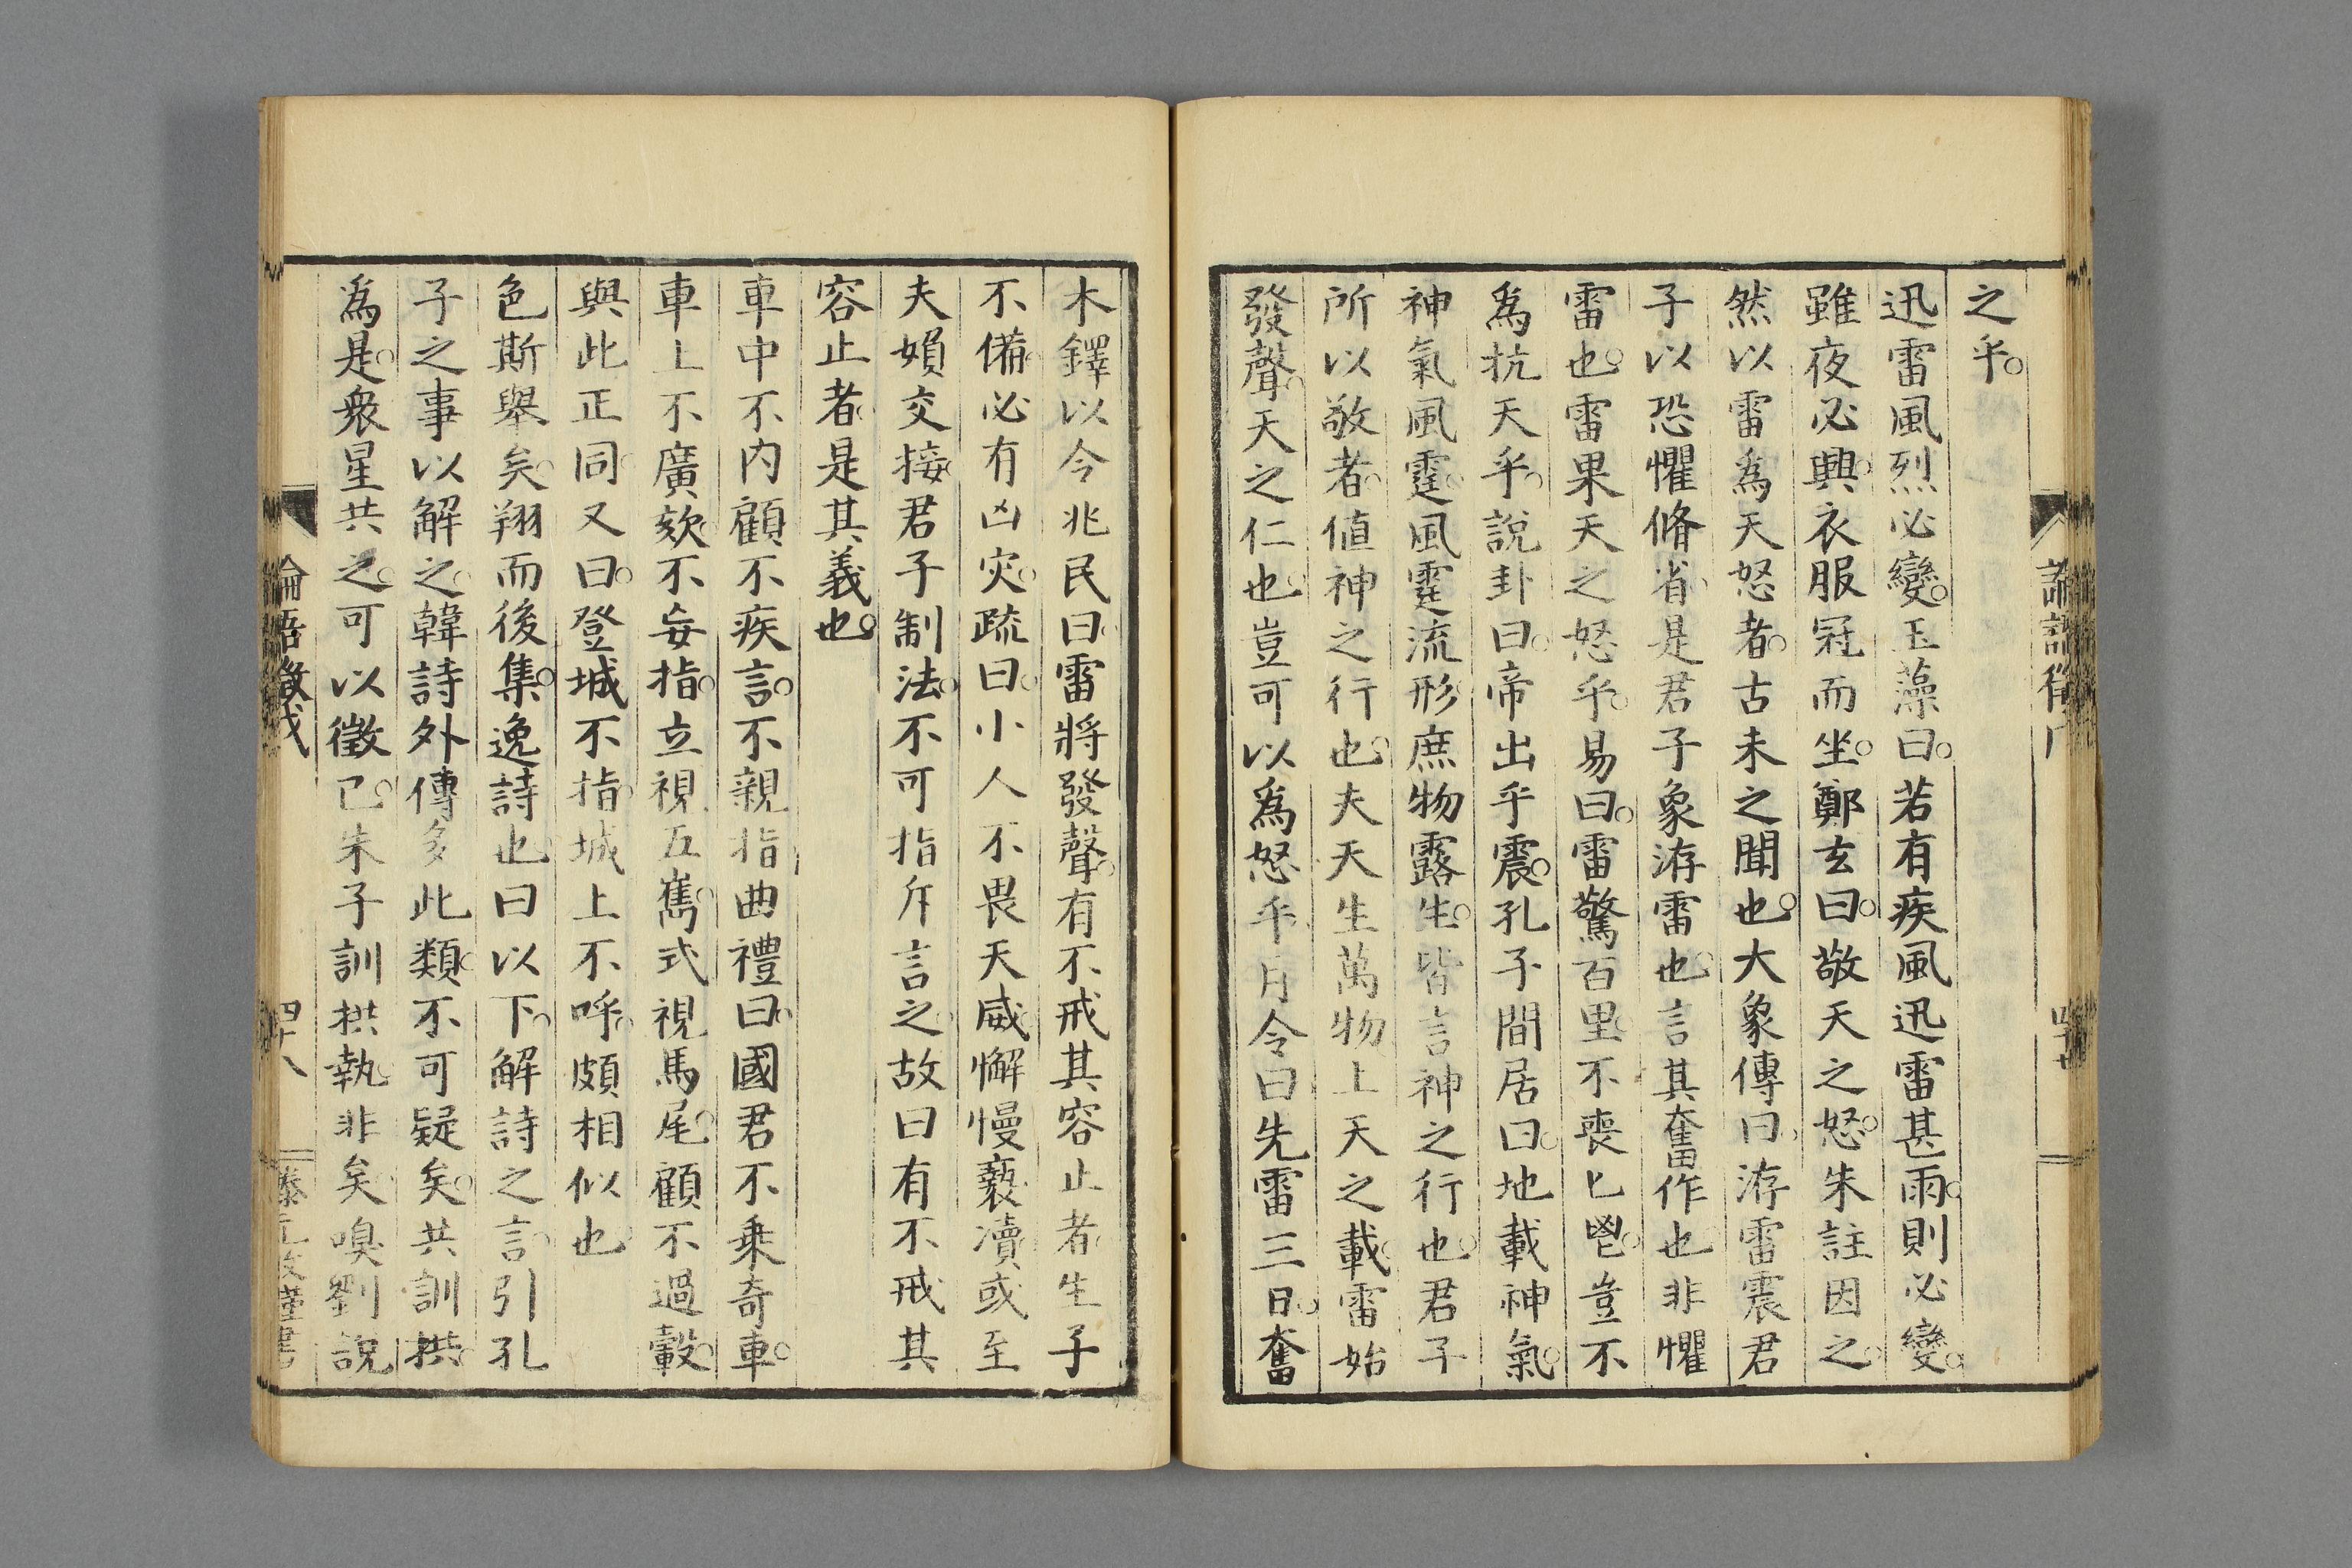 之乎。
迅雷風烈必變。玉藻曰。若有疾風迅雷甚雨。則必變。
雖夜必興。衣服冠而坐。鄭玄曰。敬天之怒。朱註因之。
然以雷爲天怒者。古未之聞也。大象傳曰。洊雷震君
子以恐懼脩省。是君子象洊雷也。言其奮作也。非懼
雷也。雷果天之怒乎。易曰。雷驚百里。不喪匕鬯。豈不
爲抗天乎。說卦曰。帝出乎震。孔子間居曰。地載神氣。
神氣風霆。風霆流形。庶物露生。皆言神之行也。君子
所以敬者。値神之行也。夫天生萬物。上天之載。雷始
發聲。天之仁也。豈可以爲怒乎。月令曰。先雷三日。奮
木鐸以令兆民曰。雷將發聲。有不戒其容止者。生子
不備。必有凶灾。疏曰。小人不畏天威。懈慢褻瀆。或至
夫婦交接。君子制法。不可指斥言之。故曰有不戒其
容止者。是其義也。
車中不内顧。不疾言。不親指。曲禮曰。國君不乘奇車。
車上不廣欬。不妄指。立視五巂。式視馬尾。顧不過轂。
與此正同。又曰。登城不指。城上不呼。頗相似也。
色斯舉矣。翔而後集。逸詩也。曰以下。解詩之言。引孔
子之事以解之。韓詩外傳多此類。不可疑矣。共訓拱。
爲是。衆星共之。可以徵已。朱子訓拱執。非矣。嗅劉說
論語徵戊
四十八